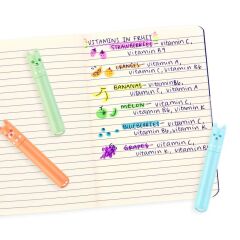 VITAMINS IN FRUIT
STRAWBERRIES - vitamin C,
vitamin B9
ORANGES - vitamin A,
vitamin C, vitamin B6
BANANAS - vitamin B6,
vitamin C, vitamin A
MELON - vitamin C,
vitamin B6, vitamin K
BLUEBERRIES - vitamin C,
vitamin B6, vitamin K
GRAPES - vitamin C,
vitamin K, vitamin B6